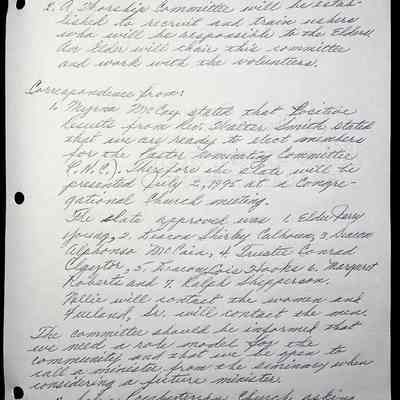 2. A Worship Committee will be estab-
lished to recruit and train ushers
who will be responsible to the Elders.
An Elder will chair this committee
and work with the volunteers.
Correspondence from:
1. Myrna McCoy stated that Positive
Results from Rev. Walter Smith stated
that we are ready to elect members
for the Pastor Nominating Committee
(P.N.C.). Therefore the slate will be
presented July 2, 1995 at a Congre-
gational Church meeting.
The slate approved was 1. Elder
Young, 2. Deacon Shirley Calhoun, 3. Deacon
Alphonso McCain, 4. Trustee Conrad
5. Deacon Lois Hooks 6. Margaret
Roberts and 7. Ralph Shepperson.
will contact the women and
Sr. will contact the men.
The committee should be informed that
we need a role model for the
community and that we be open to
call a minister from the seminary when
considering a future minister.
Presbyterian Church asking